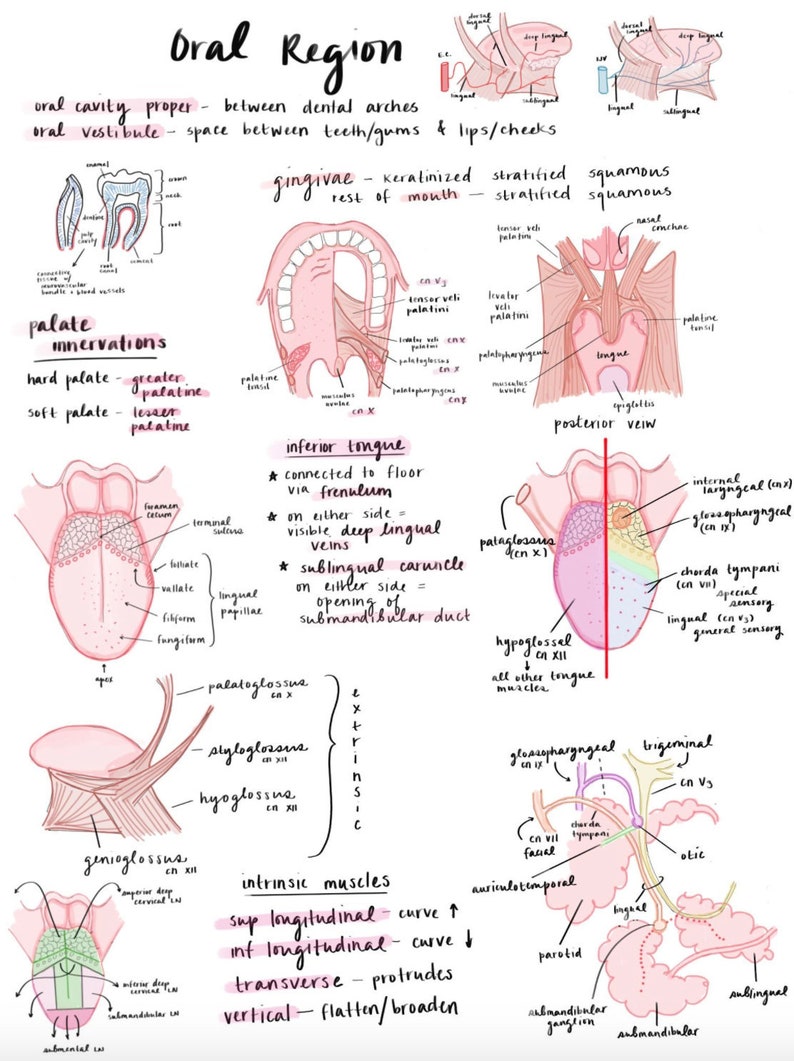 Oral Region
oral cavity proper - between dental arches
oral vestibule - space between teeth/gums & lips/cheeks
dorsal lingual
deep lingual
E.C.
lingual
sublingual
dorsal lingual
deep lingual
IJV
lingual
sublingual
enamel
crown
neck
root
dentine
pulp cavity
root canal
cement
connective tissue w/ neurovascular bundle + blood vessels
gingivae - keratinized stratified squamous
rest of mouth - stratified squamous
cn V3
tensor veli palatini
levator veli palatini cn X
palatoglossus cn X
palatopharyngeus cn X
palatine tonsil
musculus uvulae
cn X
tensor veli palatini
nasal conchae
levator veli palatini
palatine tonsil
palatopharyngeus
tongue
musculus uvulae
epiglottis
posterior veiw
palate innervations
hard palate - greater palatine
soft palate - lesser palatine
foramen cecum
terminal sulcus
foliate
vallate
filiform
fungiform
lingual papillae
apex
inferior tongue
★ connected to floor
via frenulum
★ on either side =
visible deep lingual
veins
★ sublingual caruncle
on either side =
opening of
submandibular duct
internal laryngeal (cn X)
glossopharyngeal (cn IX)
pataglossus (cn X)
chorda tympani (cn VII)
special sensory
lingual (cn V3)
general sensory
hypoglossal cn XII
all other tongue muscles
palatoglossus cn X
styloglossus cn XII
hyoglossus cn XII
genioglossus cn XII
extrinsic
superior deep cervical LN
inferior deep cervical LN
submandibular LN
submental LN
intrinsic muscles
sup longitudinal - curve ↑
inf longitudinal - curve ↓
transverse - protrudes
vertical - flatten/broaden
glossopharyngeal cn IX
trigeminal
cn V3
chorda tympani
cn VII facial
otic
auriculotemporal
lingual
parotid
submandibular ganglion
submandibular
sublingual